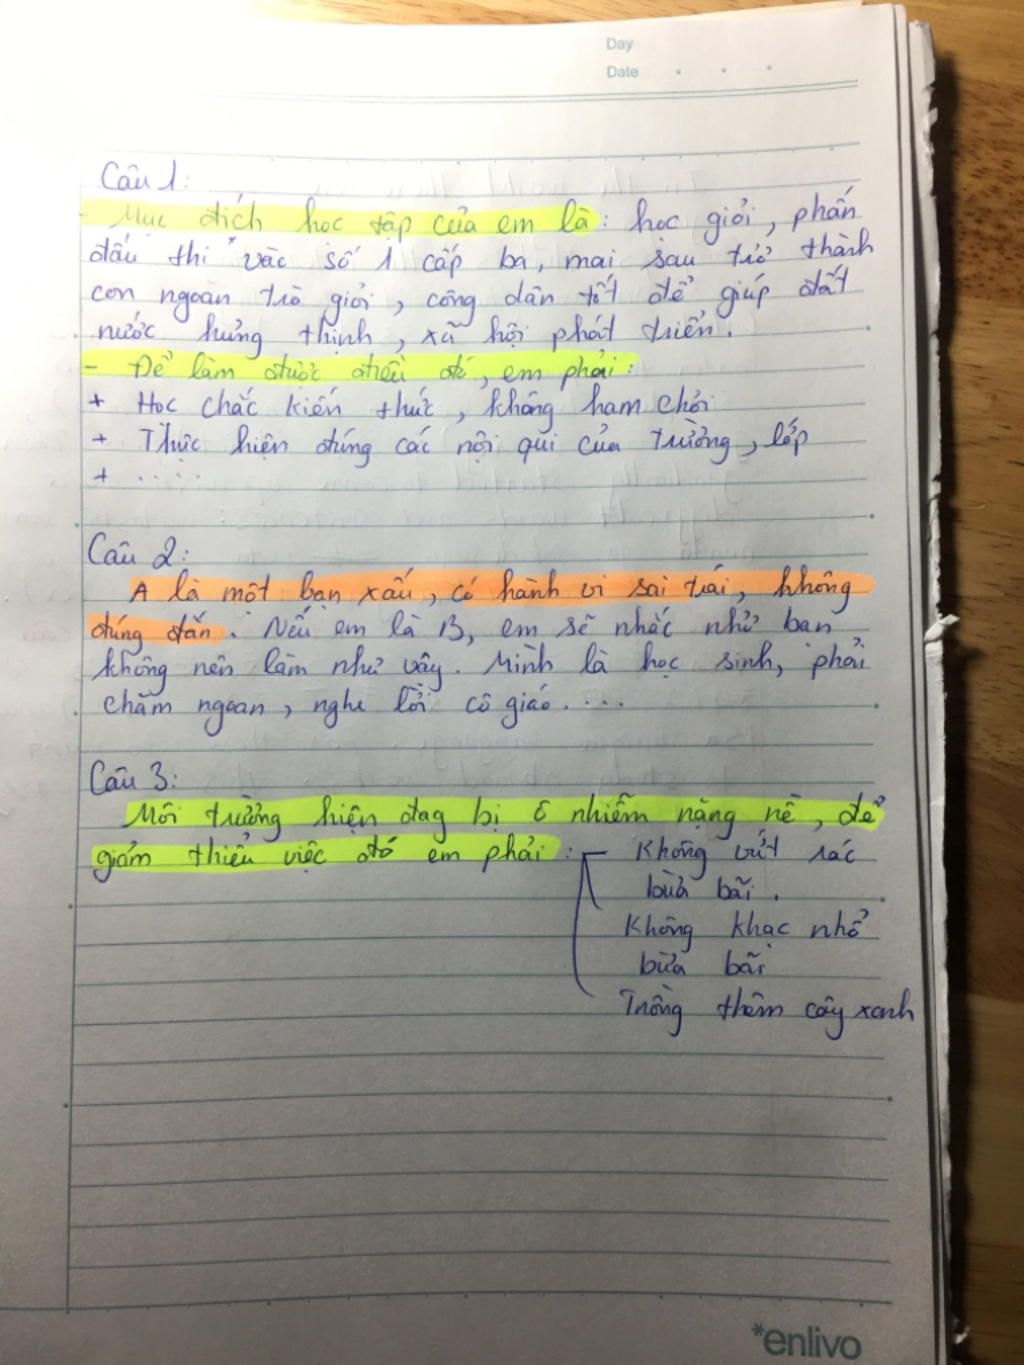 Day
Date
Câu 1:
- Mục đích học tập của em là: học giỏi, phấn
đấu thi vào số 1 cấp ba, mai sau trở thành
con ngoan trò giỏi, công dân tốt để giúp đất
nước hưng thịnh, xã hội phát triển.
- Để làm được điều đó, em phải:
+ Học chắc kiến thức, không ham chơi
+ Thực hiện đúng các nội qui của trường, lớp
+ .....
Câu 2:
A là một bạn xấu, có hành vi sai trái, không
đúng đắn. Nếu em là B, em sẽ nhắc nhở bạn
không nên làm như vậy. Mình là học sinh, phải
chăm ngoan, nghe lời cô giáo....
Câu 3:
Môi trường hiện đag bị ô nhiễm nặng nề, để
giảm thiểu việc đó em phải: - Không vứt rác
bừa bãi.
Không khạc nhổ
bừa bãi
Trồng thêm cây xanh
*enlivo